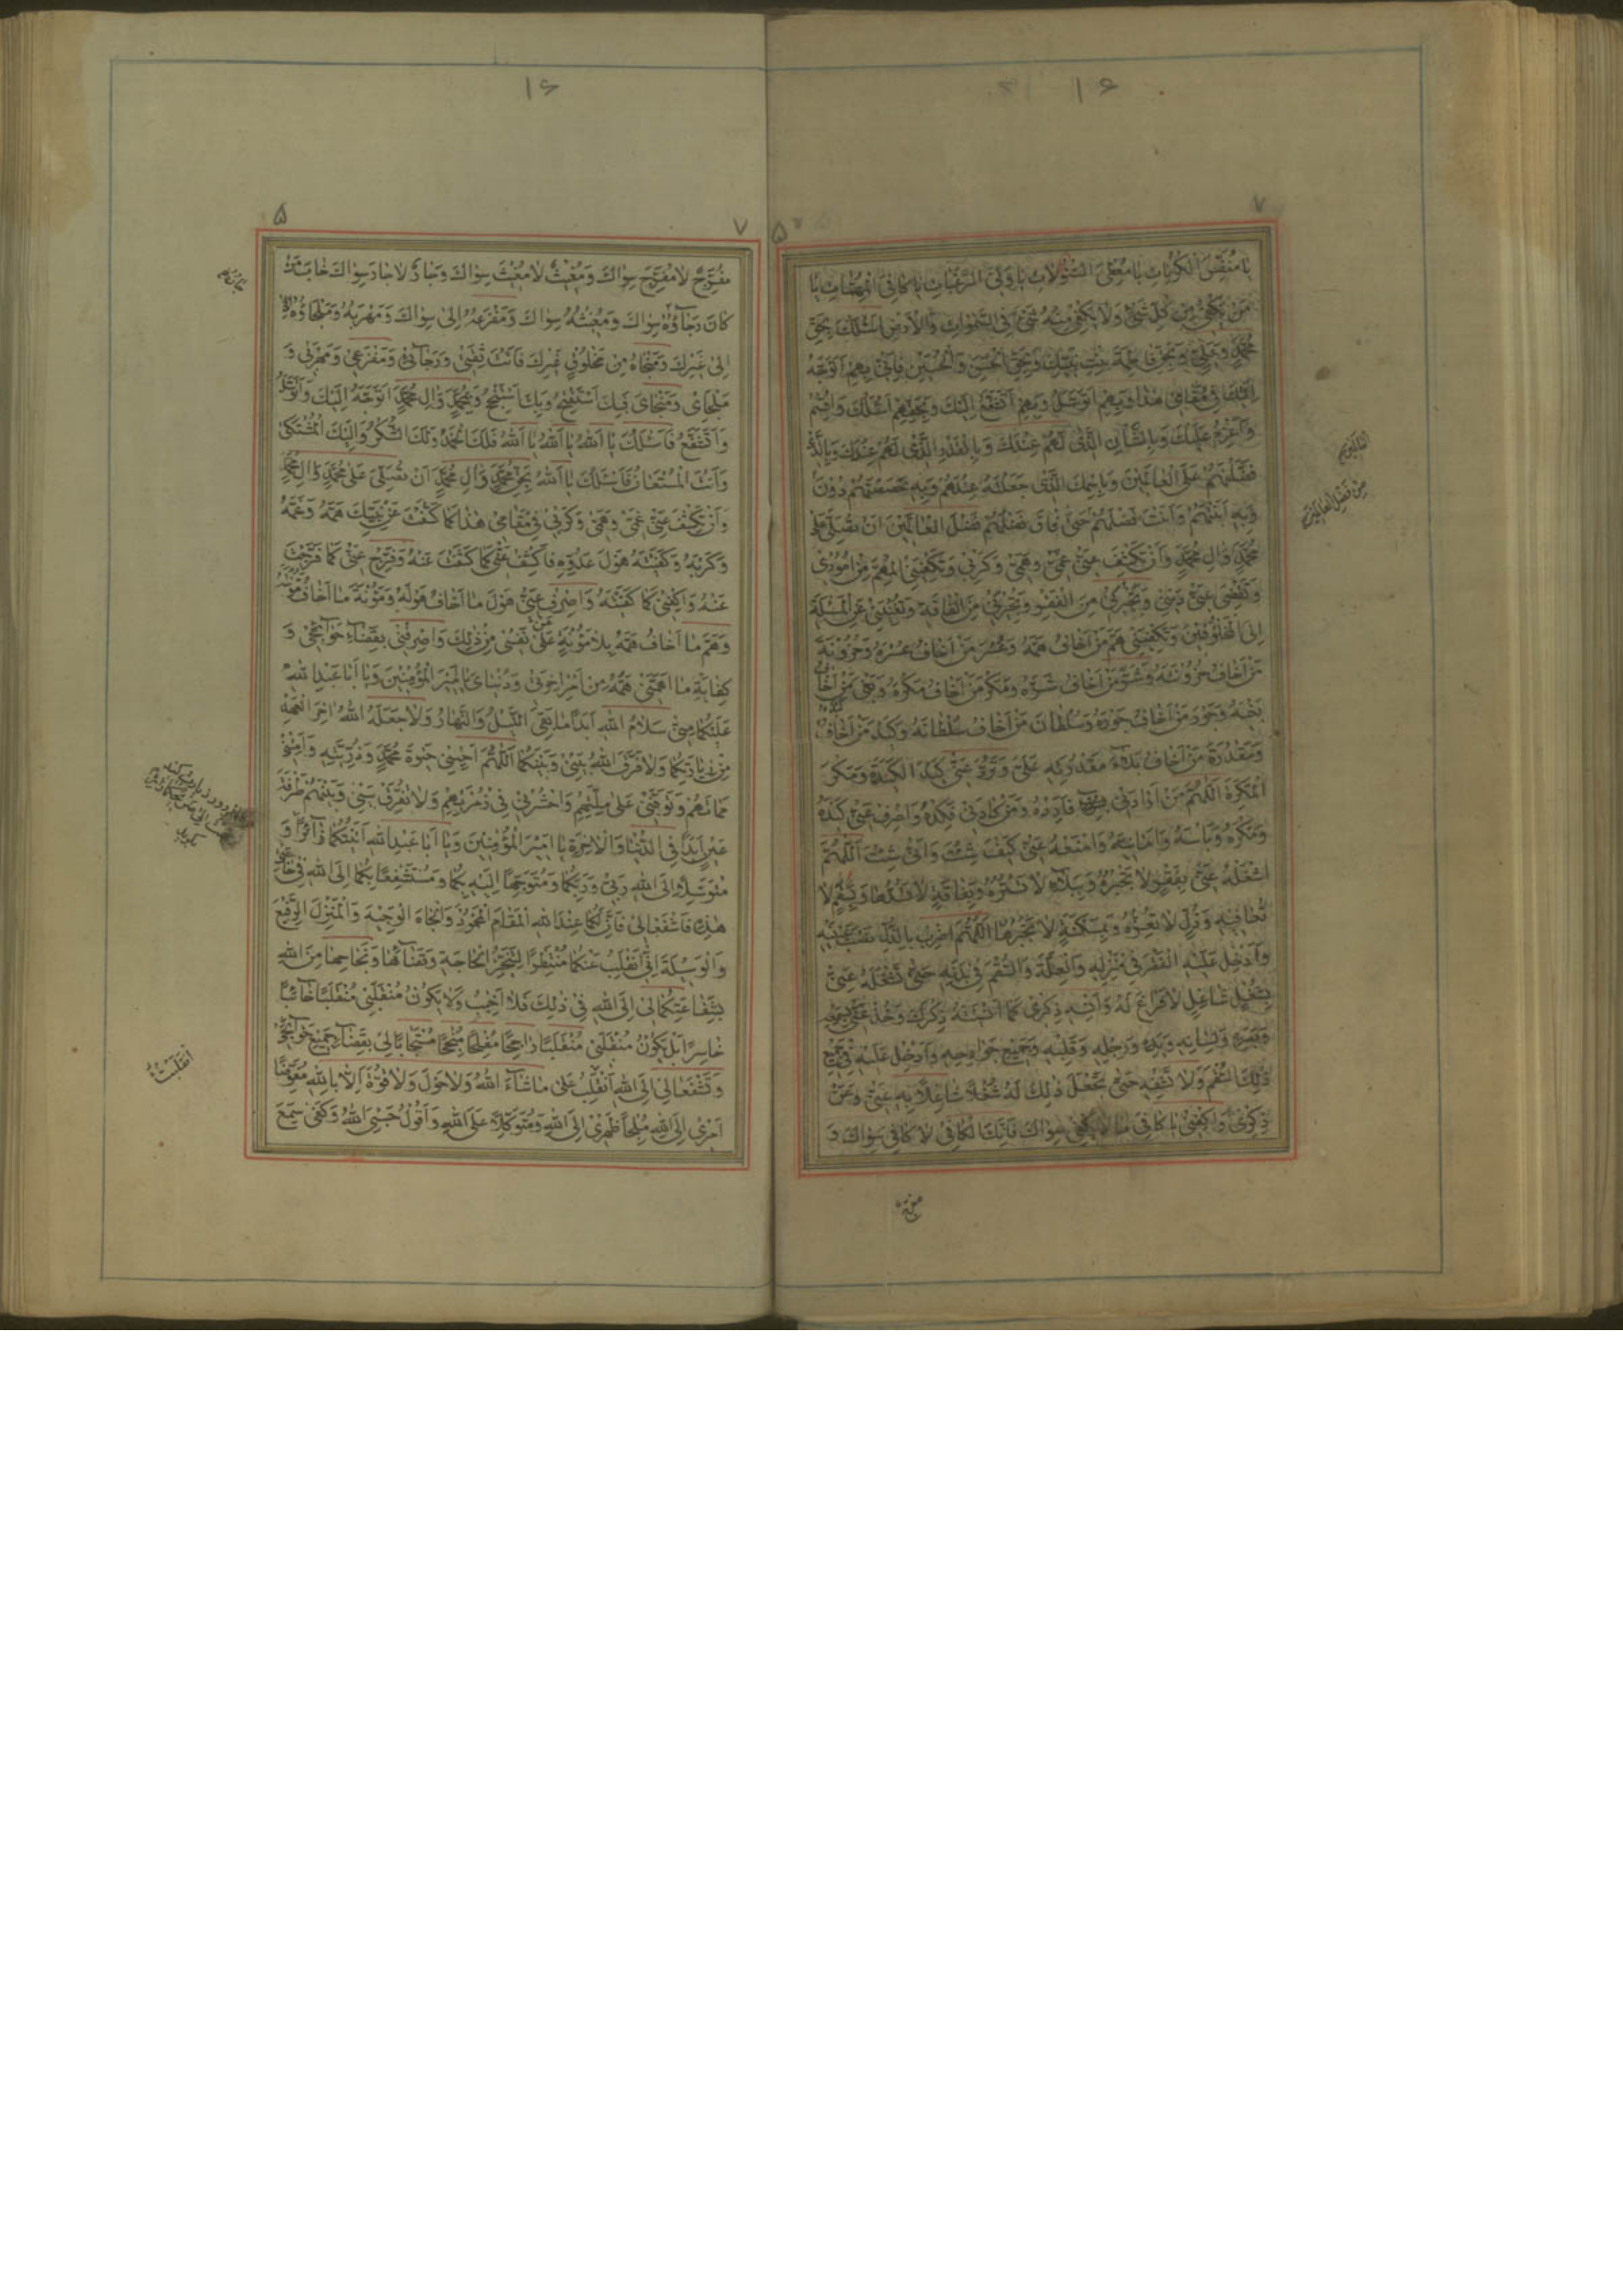 ۱۶
۷
يا مُنَفِّسَ الْكُرُباتِ يا مُعْطِيَ السُّؤُلاتِ يا وَلِيَّ الرَّغَباتِ يا كافِيَ الْمُهِمّاتِ يا
مَنْ يَكْفي مِنْ كُلِّ شَيْءٍ وَلا يَكْفي مِنْهُ شَيْءٌ فِي السَّمٰواتِ وَالْاَرْضِ اَسْئَلُكَ بِحَقِّ
مُحَمَّدٍ وَعَلِيٍّ وَبِحَقِّ فاطِمَةَ بِنْتِ نَبِيِّكَ وَبِحَقِّ الْحَسَنِ وَالْحُسَيْنِ فَاِنّي بِهِمْ اَتَوَجَّهُ
اِلَيْكَ في مَقامي هٰذا وَبِهِمْ اَتَوَسَّلُ وَبِهِمْ اَتَشَفَّعُ اِلَيْكَ وَبِحَقِّهِمْ اَسْئَلُكَ وَاُقْسِمُ
وَاَعْزِمُ عَلَيْكَ وَبِالشَّأْنِ الَّذي لَهُمْ عِنْدَكَ وَبِالْقَدْرِ الَّذي لَهُمْ عِنْدَكَ وَبِالَّذي
فَضَّلْتَهُمْ عَلَى الْعالَمينَ وَبِاسْمِكَ الَّذي جَعَلْتَهُ عِنْدَهُمْ وَبِهِ خَصَصْتَهُمْ دُونَ
وَبِهِ اَبَنْتَهُمْ وَاَبَنْتَ فَضْلَهُمْ حَتّى فاقَ فَضْلُهُمْ فَضْلَ الْعالَمينَ اَنْ تُصَلِّيَ عَلى
مُحَمَّدٍ وَالِ مُحَمَّدٍ وَاَنْ تَكْشِفَ عَنّي غَمّي وَهَمّي وَكَرْبي وَتَكْفِيَنِي الْمُهِمَّ مِنْ اُمُوري
وَتَقْضِيَ عَنّي دَيْني وَتُجيرَني مِنَ الْفَقْرِ وَتُجيرَني مِنَ الْفاقَةِ وَتُغْنِيَني عَنِ الْمَسْئَلَةِ
اِلَى الْمَخْلُوقينَ وَتَكْفِيَني هَمَّ مَنْ اَخافُ هَمَّهُ وَعُسْرَ مَنْ اَخافُ عُسْرَهُ وَحُزُونَةَ
مَنْ اَخافُ حُزُونَتَهُ وَشَرَّ مَنْ اَخافُ شَرَّهُ وَمَكْرَ مَنْ اَخافُ مَكْرَهُ وَبَغْيَ مَنْ اَخافُ
بَغْيَهُ وَجَوْرَ مَنْ اَخافُ جَوْرَهُ وَسُلْطانَ مَنْ اَخافُ سُلْطانَهُ وَكَيْدَ مَنْ اَخافُ كَيْدَهُ
وَمَقْدُرَةَ مَنْ اَخافُ بَلاءَ مَقْدُرَتِهِ عَلَيَّ وَتَرُدَّ عَنّي كَيْدَ الْكَيَدَةِ وَمَكْرَ
الْمَكَرَةِ اَللّهُمَّ مَنْ اَرادَني فَاَرِدْهُ وَمَنْ كادَني فَكِدْهُ وَاصْرِفْ عَنّي كَيْدَهُ
وَمَكْرَهُ وَبَأْسَهُ وَاَمانِيَّهُ وَامْنَعْهُ عَنّي كَيْفَ شِئْتَ وَاَنّى شِئْتَ اَللّهُمَّ
اشْغَلْهُ عَنّي بِفَقْرٍ لا تَجْبُرُهُ وَبِبَلاءٍ لا تَسْتُرُهُ وَبِفاقَةٍ لا تَسُدُّها وَبِسُقْمٍ لا
تُعافيهِ وَذُلٍّ لا تُعِزُّهُ وَبِمَسْكَنَةٍ لا تَجْبُرُها اَللّهُمَّ اضْرِبْ بِالذُّلِّ نَصْبَ عَيْنَيْهِ
وَاَدْخِلْ عَلَيْهِ الْفَقْرَ في مَنْزِلِهِ وَالْعِلَّةَ وَالسُّقْمَ في بَدَنِهِ حَتّى تَشْغَلَهُ عَنّي
بِشُغْلٍ شاغِلٍ لا فَراغَ لَهُ وَاَنْسِهِ ذِكْري كَما اَنْسَيْتَهُ ذِكْرَكَ وَخُذْ عَنّي بِسَمْعِهِ
وَبَصَرِهِ وَلِسانِهِ وَيَدِهِ وَرِجْلِهِ وَقَلْبِهِ وَجَميعِ جَوارِحِهِ وَاَدْخِلْ عَلَيْهِ في جَميعِ
ذٰلِكَ السُّقْمَ وَلا تَشْفِهِ حَتّى تَجْعَلَ ذٰلِكَ لَهُ شُغْلاً شاغِلاً بِهِ عَنّي وَعَنْ
ذِكْري وَاكْفِني يا كافِيَ ما لا يَكْفي سِواكَ فَاِنَّكَ الْكافي لا كافِيَ سِواكَ وَ
الْعالَمينَ
مِنْ فَضْلِ الْعالَمينَ
مفرّج
۱۶
۵
۷
۵
مُفَرِّجٌ لا مُفَرِّجَ سِواكَ وَمُغيثٌ لا مُغيثَ سِواكَ وَجارٌ لا جارَ سِواكَ خابَ مَنْ
كانَ رَجاؤُهُ سِواكَ وَمُغيثُهُ سِواكَ وَمَفْزَعُهُ اِلى سِواكَ وَمَهْرَبُهُ وَمَلْجَاؤُهُ
اِلى غَيْرِكَ وَمَنْجاهُ مِنْ مَخْلُوقٍ غَيْرِكَ فَاَنْتَ ثِقَتي وَرَجائي وَمَفْزَعي وَمَهْرَبي وَ
مَلْجَايَ وَمَنْجايَ فَبِكَ اَسْتَفْتِحُ وَبِكَ اَسْتَنْجِحُ وَبِمُحَمَّدٍ وَالِ مُحَمَّدٍ اَتَوَجَّهُ اِلَيْكَ وَاَتَوَسَّلُ
وَاَتَشَفَّعُ فَاَسْئَلُكَ يا اَللهُ يا اَللهُ يا اَللهُ فَلَكَ الْحَمْدُ وَلَكَ الشُّكْرُ وَاِلَيْكَ الْمُشْتَكى
وَاَنْتَ الْمُسْتَعانُ فَاَسْئَلُكَ يا اَللهُ بِحَقِّ مُحَمَّدٍ وَالِ مُحَمَّدٍ اَنْ تُصَلِّيَ عَلى مُحَمَّدٍ وَالِ مُحَمَّدٍ
وَاَنْ تَكْشِفَ عَنّي غَمّي وَهَمّي وَكَرْبي في مَقامي هٰذا كَما كَشَفْتَ عَنْ نَبِيِّكَ هَمَّهُ وَغَمَّهُ
وَكَرْبَهُ وَكَفَيْتَهُ هَوْلَ عَدُوِّهِ فَاكْشِفْ عَنّي كَما كَشَفْتَ عَنْهُ وَفَرِّجْ عَنّي كَما فَرَّجْتَ
عَنْهُ وَاكْفِني كَما كَفَيْتَهُ وَاصْرِفْ عَنّي هَوْلَ ما اَخافُ هَوْلَهُ وَمَؤُنَةَ ما اَخافُ مَؤُنَتَهُ
وَهَمَّ ما اَخافُ هَمَّهُ بِلا مَؤُنَةٍ عَلى نَفْسي مِنْ ذٰلِكَ وَاصْرِفْني بِقَضاءِ حَوائِجي وَ
كِفايَةِ ما اَهَمَّني هَمُّهُ مِنْ اَمْرِ اخِرَتي وَدُنْيايَ يا اَميرَ الْمُؤْمِنينَ وَيا اَبا عَبْدِ اللهِ
عَلَيْكُما مِنّي سَلامُ اللهِ اَبَداً ما بَقِيَ اللَّيْلُ وَالنَّهارُ وَلا جَعَلَهُ اللهُ اخِرَ الْعَهْدِ
مِنْ زِيارَتِكُما وَلا فَرَّقَ اللهُ بَيْني وَبَيْنَكُما اَللّهُمَّ اَحْيِني حَيٰوةَ مُحَمَّدٍ وَذُرِّيَّتِهِ وَاَمِتْني
مَماتَهُمْ وَتَوَفَّني عَلى مِلَّتِهِمْ وَاحْشُرْني في زُمْرَتِهِمْ وَلا تُفَرِّقْ بَيْني وَبَيْنَهُمْ طَرْفَةَ
عَيْنٍ اَبَداً فِي الدُّنْيا وَالْاخِرَةِ يا اَميرَ الْمُؤْمِنينَ وَيا اَبا عَبْدِ اللهِ اَتَيْتُكُما زائِراً وَ
مُتَوَسِّلاً اِلَى اللهِ رَبّي وَرَبِّكُما وَمُتَوَجِّهاً اِلَيْهِ بِكُما وَمُسْتَشْفِعاً بِكُما اِلَى اللهِ في حاجَتي
هٰذِهِ فَاشْفَعا لي فَاِنَّ لَكُما عِنْدَ اللهِ الْمَقامَ الْمَحْمُودَ وَالْجاهَ الْوَجيهَ وَالْمَنْزِلَ الرَّفيعَ
وَالْوَسيلَةَ اِنّي اَنْقَلِبُ عَنْكُما مُنْتَظِراً لِتَنَجُّزِ الْحاجَةِ وَقَضائِها وَنَجاحِها مِنَ اللهِ
بِشَفاعَتِكُما لي اِلَى اللهِ في ذٰلِكَ فَلا اَخيبُ وَلا يَكُونُ مُنْقَلَبي مُنْقَلَباً خائِباً
خاسِراً بَلْ يَكُونُ مُنْقَلَبي مُنْقَلَباً راجِحاً مُفْلِحاً مُنْجِحاً مُسْتَجاباً لي بِقَضاءِ جَميعِ حَوائِجي
وَتَشْفَعا لي اِلَى اللهِ اَنْقَلِبُ عَلى ما شاءَ اللهُ وَلا حَوْلَ وَلا قُوَّةَ اِلّا بِاللهِ مُفَوِّضاً
اَمْري اِلَى اللهِ مُلْجِاً ظَهْري اِلَى اللهِ وَمُتَوَكِّلاً عَلَى اللهِ وَاَقُولُ حَسْبِيَ اللهُ وَكَفى سَمِعَ
انْقَلَبْتُ